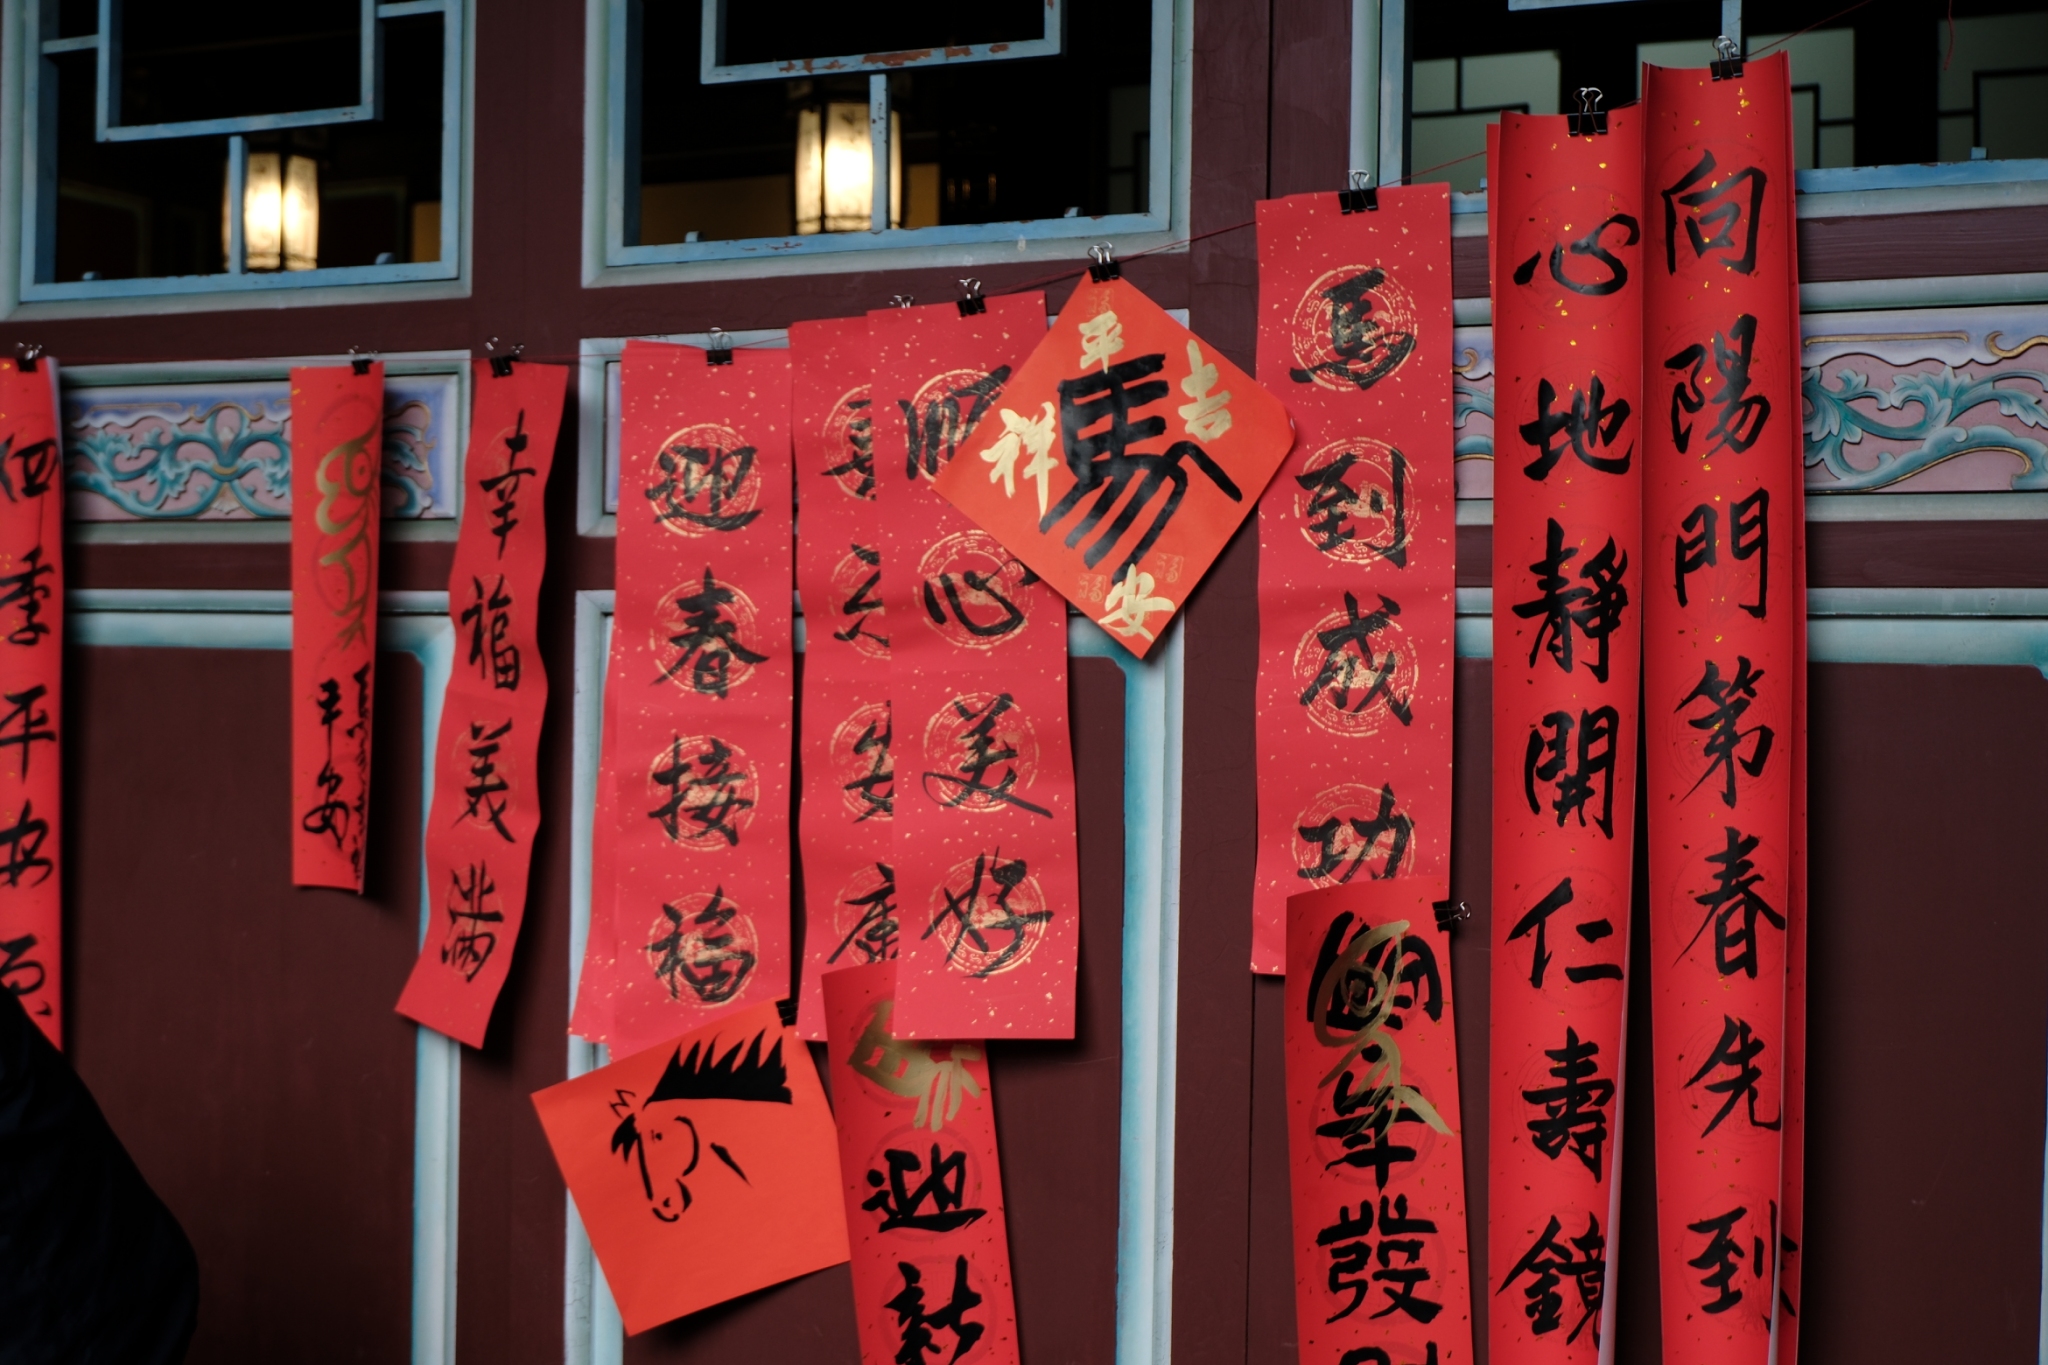 向陽門第春先到
心地靜開仁壽鏡
馬到成功
年發
平吉
馬
祥安
順心美好
迎新
迎春接福
幸福美滿
平安
季平安